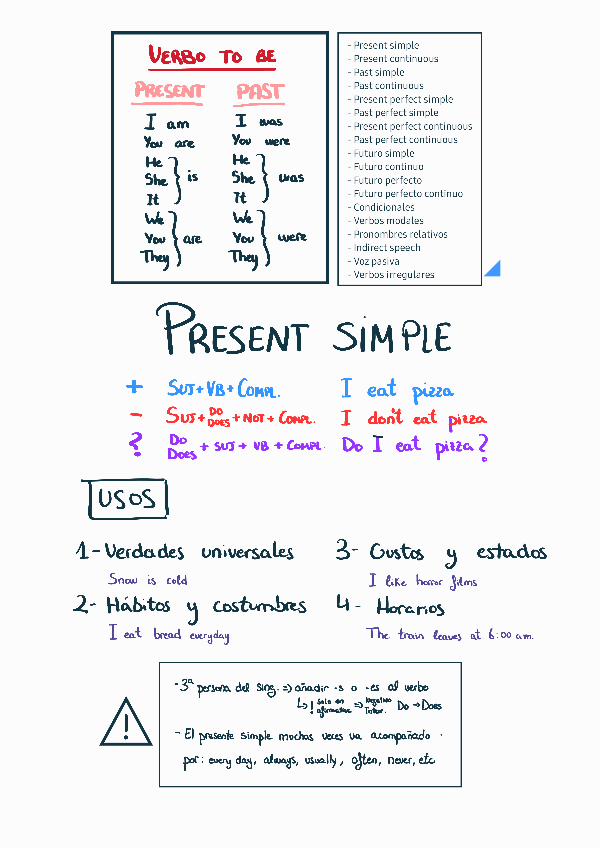 VERBO TO BE
PRESENT PAST
I am I was
You are You were
He He
She is She was
It It
We We
You are You were
They They
- Present simple
- Present continuous
- Past simple
- Past continuous
- Present perfect simple
- Past perfect simple
- Present perfect continuous
- Past perfect continuous
- Futuro simple
- Futuro continuo
- Futuro perfecto
- Futuro perfecto continuo
- Condicionales
- Verbos modales
- Pronombres relativos
- Indirect speech
- Voz pasiva
- Verbos irregulares
PRESENT SIMPLE
+ SUJ + VB + COMPL. I eat pizza
- SUJ + DO DOES + NOT + COMPL. I don't eat pizza
? DO DOES + SUJ + VB + COMPL. Do I eat pizza?
USOS
1- Verdades universales
Snow is cold
2- Hábitos y costumbres
I eat bread everyday
3- Gustos y estados
I like horror films
4- Horarios
The train leaves at 6:00 am.
!
- 3ª persona del sing. => añadir -s o -es al verbo
↳ ! Solo en afirmativa => Negativo Do → Does
- El presente simple muchas veces va acompañado
por: every day, always, usually, often, never, etc